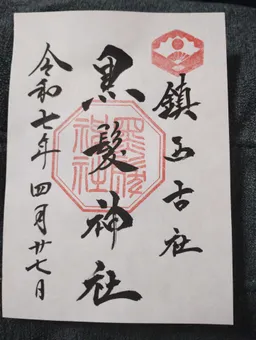 鎮西古社
黒髪神社
令和七年 四月廿七日